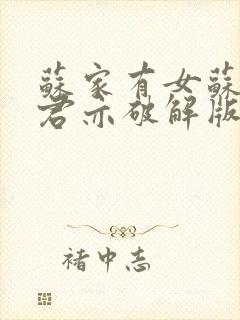 蘇家有女蘇
君亦破解版
褚中志